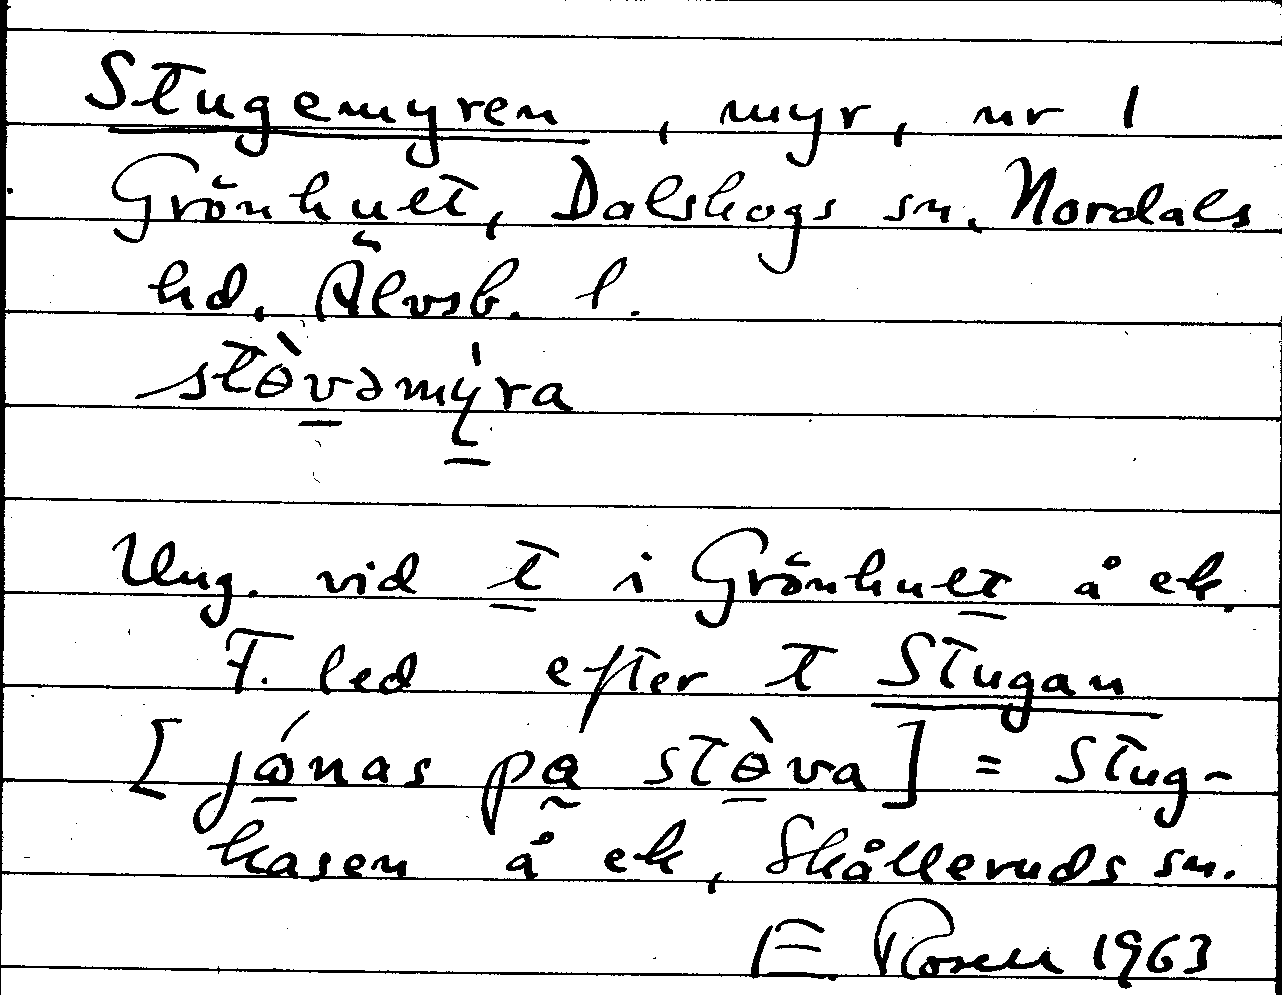 Stugemyren, myr, nr 1
Grönhult, Dalskogs sn, Nordals
hd, Älvsb. l.
stɵ̀vəmýra
Ung. vid t i Grönhult å ek.
F. led efter t Stugan
[jónas pa stɵ̀va] = Stug-
kasen å ek, Skålleruds sn.
E. Rosell 1963